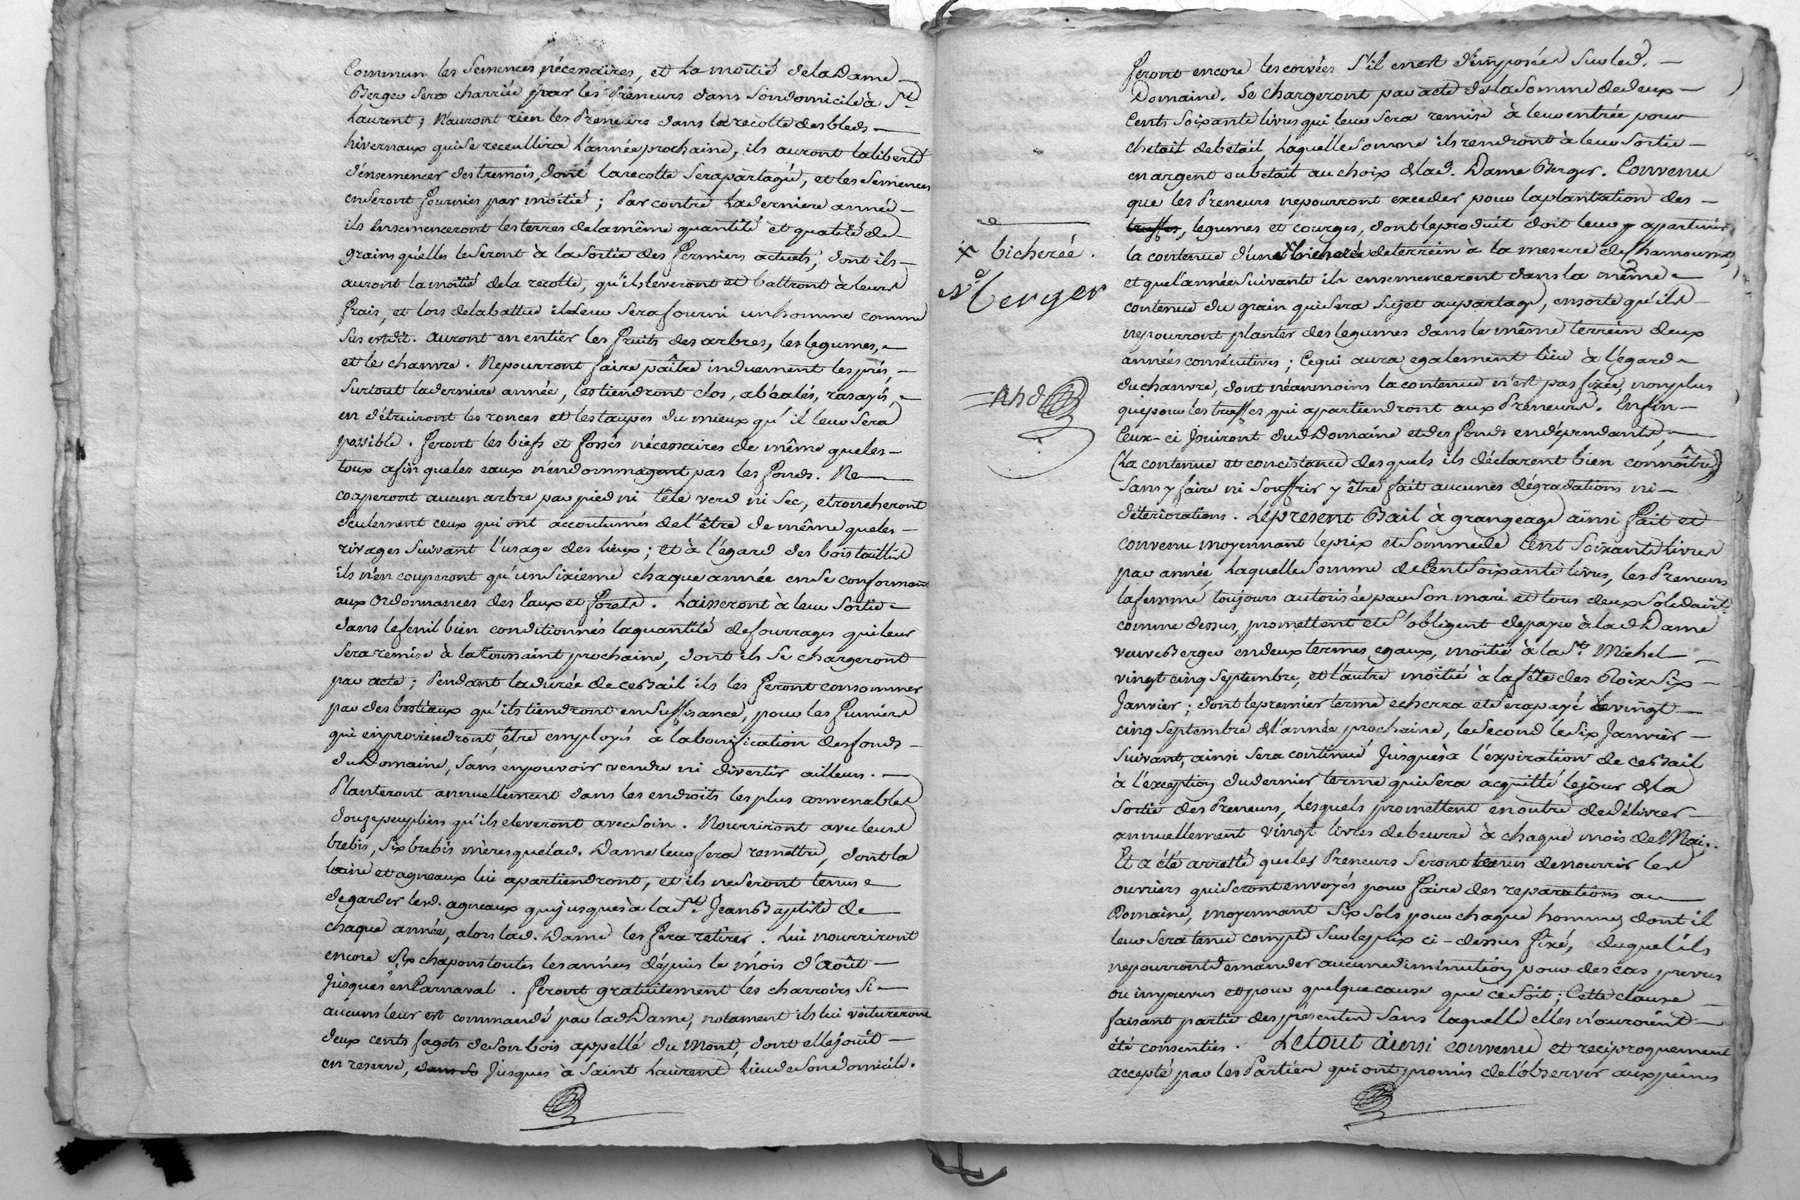 Commun les Semences nécessaires, et La moitié de la Dame
Berger Sera charriée par les Preneurs dans Son domicile à St
Laurent ; N'auront rien les Preneurs dans la recolte des bleds
hivernaux qui se recullira L'année prochaine, ils auront la liberté
d'ensemencer des tremois, dont la recolte Sera partagée, et les Semences
en Seront fournies par moitié ; Par contre La derniere année
ils Ensemenceront les terres de la même quantité et qualité de
grains qu'elles le Seront à la Sortie des Fermiers actuels, dont ils
auront la moitié de la recolte, qu'ils leveront et battront à leurs
frais, et lors de la battue il leur Sera fourni un homme comme
Sus est dit. Auront en entier les fruits des arbres, les legumes,
et le chanvre. Ne pourront faire paître induement les prés,
Surtout la derniere année, les tiendront clos, abéalés, rasayés,
en détruiront les ronces et les taupes du mieux qu'il leur Sera
possible. feront les biefs et fossés nécessaires de même que les
toux afin que les eaux n'endommagent pas les fonds. Ne
couperont aucun arbre par pied ni tête verd ni Sec, ebrancheront
Seulement ceux qui ont accoutumés de l'être de même que les
rivages Suivant l'usage des lieux ; et à l'égard des bois taillis
ils n'en couperont qu'un Sixieme chaque année en Se conformant
aux Ordonnances des Eaux et forets. Laisseront à leur Sortie
dans le fenil bien conditionnés la quantité de fourrages qui leur
Sera remise à la Toussaint prochaine, dont ils Se chargeront
par acte ; Pendant la durée de ce Bail ils les feront consommer
par des bestiaux qu'ils tiendront en Suffisance, pour les fumiers
qui en proviendront être employés à la bonification des fonds
du Domaine, Sans en pouvoir vendre ni divertir ailleurs.
Planteront annuellement dans les endroits les plus convenables
douze peupliers qu'ils eleveront avec Soin. Nourriront avec leurs
brebis, Six brebis mères que lad. Dame leur fera remettre, dont la
laine et agneaux lui apartiendront, et ils ne Seront tenus
de garder lesd. agneaux que jusques à la St Jean Baptiste de
chaque année, alors lad. Dame les fera retirer. Lui nourriront
encore Six chapons toutes les années dépuis le mois d'Août
Jusques en Carnaval. feront gratuitement les charrois Si
aucuns leur est commandé par lad Dame, notament ils lui voitureront
deux cents fagots de Son bois appellé du Mont, dont elle jouit
en reserve, dans S Jusques à Saint Laurent Lieu de Son domicile.
x bichereé.
Ve berger
And
feront encore les corvées S'il en est d'imposées Sur led.
Domaine. Se chargeront par acte de la Somme de deux
Cents Soixante livres qui leur Sera remise à leur entrée pour
chetail de betail Laquelle Somme ils rendront à leur Sortie
en argent ou betail au choix de lad. Dame Berger. Convenu
que les Preneurs ne pourront exceder pour la plantation des
truffes, legumes et courges, dont le produit doit leur y apartenir,
la contenue d'une x bicherée de terrein à la mesure de Chamount,
et que l'année Suivante ils ensemenceront dans la même
contenue du grain qui Sera Sujet au partage, ensorte qu'ils
ne pourront planter des legumes dans le même terrein deux
années consécutives ; Ce qui aura egalement lieu à l'égard
du chanvre, dont néanmoins la contenue n'est pas fixée, non plus
que pour les truffes, qui apartiendront aux Preneurs. Enfin
Ceux-ci Jouiront dud Domaine et des fonds en dépendants,
(La contenue et concistance desquels ils déclarent bien connoître)
Sans y faire ni Souffrir y être fait aucunes dégradations ni
déteriorations. Le present Bail à grangeage ainsi fait et
convenu moyennant le prix et Somme de Cent Soixante livres
par année, Laquelle Somme de Cent Soixante livres, les Preneurs
la femme toujours autorisée par Son mari et tous deux Solidairt
comme dessus, promettent et S'obligent de payer à lad Dame
veuve Berger en deux termes egaux, moitié à la St Michel
vingt cinq Septembre, et l'autre moitié à la fête des Roix Six
Janvier ; dont le premier terme echerra et sera payé le vingt
cinq Septembre de l'année prochaine, le Second le Six Janvier
Suivant, ainsi Sera continué Jusques à l'expiration de ce Bail
à l'exception du dernier terme qui Sera acquitté le jour de la
Sortie des Preneurs, Lesquels promettent en outre de délivrer
annuellement vingt livres de beurre à chaque mois de Mai.
Et a été arretté que les Preneurs Seront tenus de nourrir les
ouvriers qui Seront envoyés pour faire des reparations au
Domaine, moyennant Six Sols pour chaque homme, dont il
leur Sera tenu compte Sur le prix ci-dessus fixé, duquel ils
ne pourront demander aucune diminution pour des cas prevus
ou imprevus et pour quelque cause que ce Soit ; Cette clause
faisant partie des presentes Sans laquelle elles n'auroient
été consenties. Le tout ainsi convenu et reciproquement
accepté par les Parties qui ont promis de l'observer aux peines